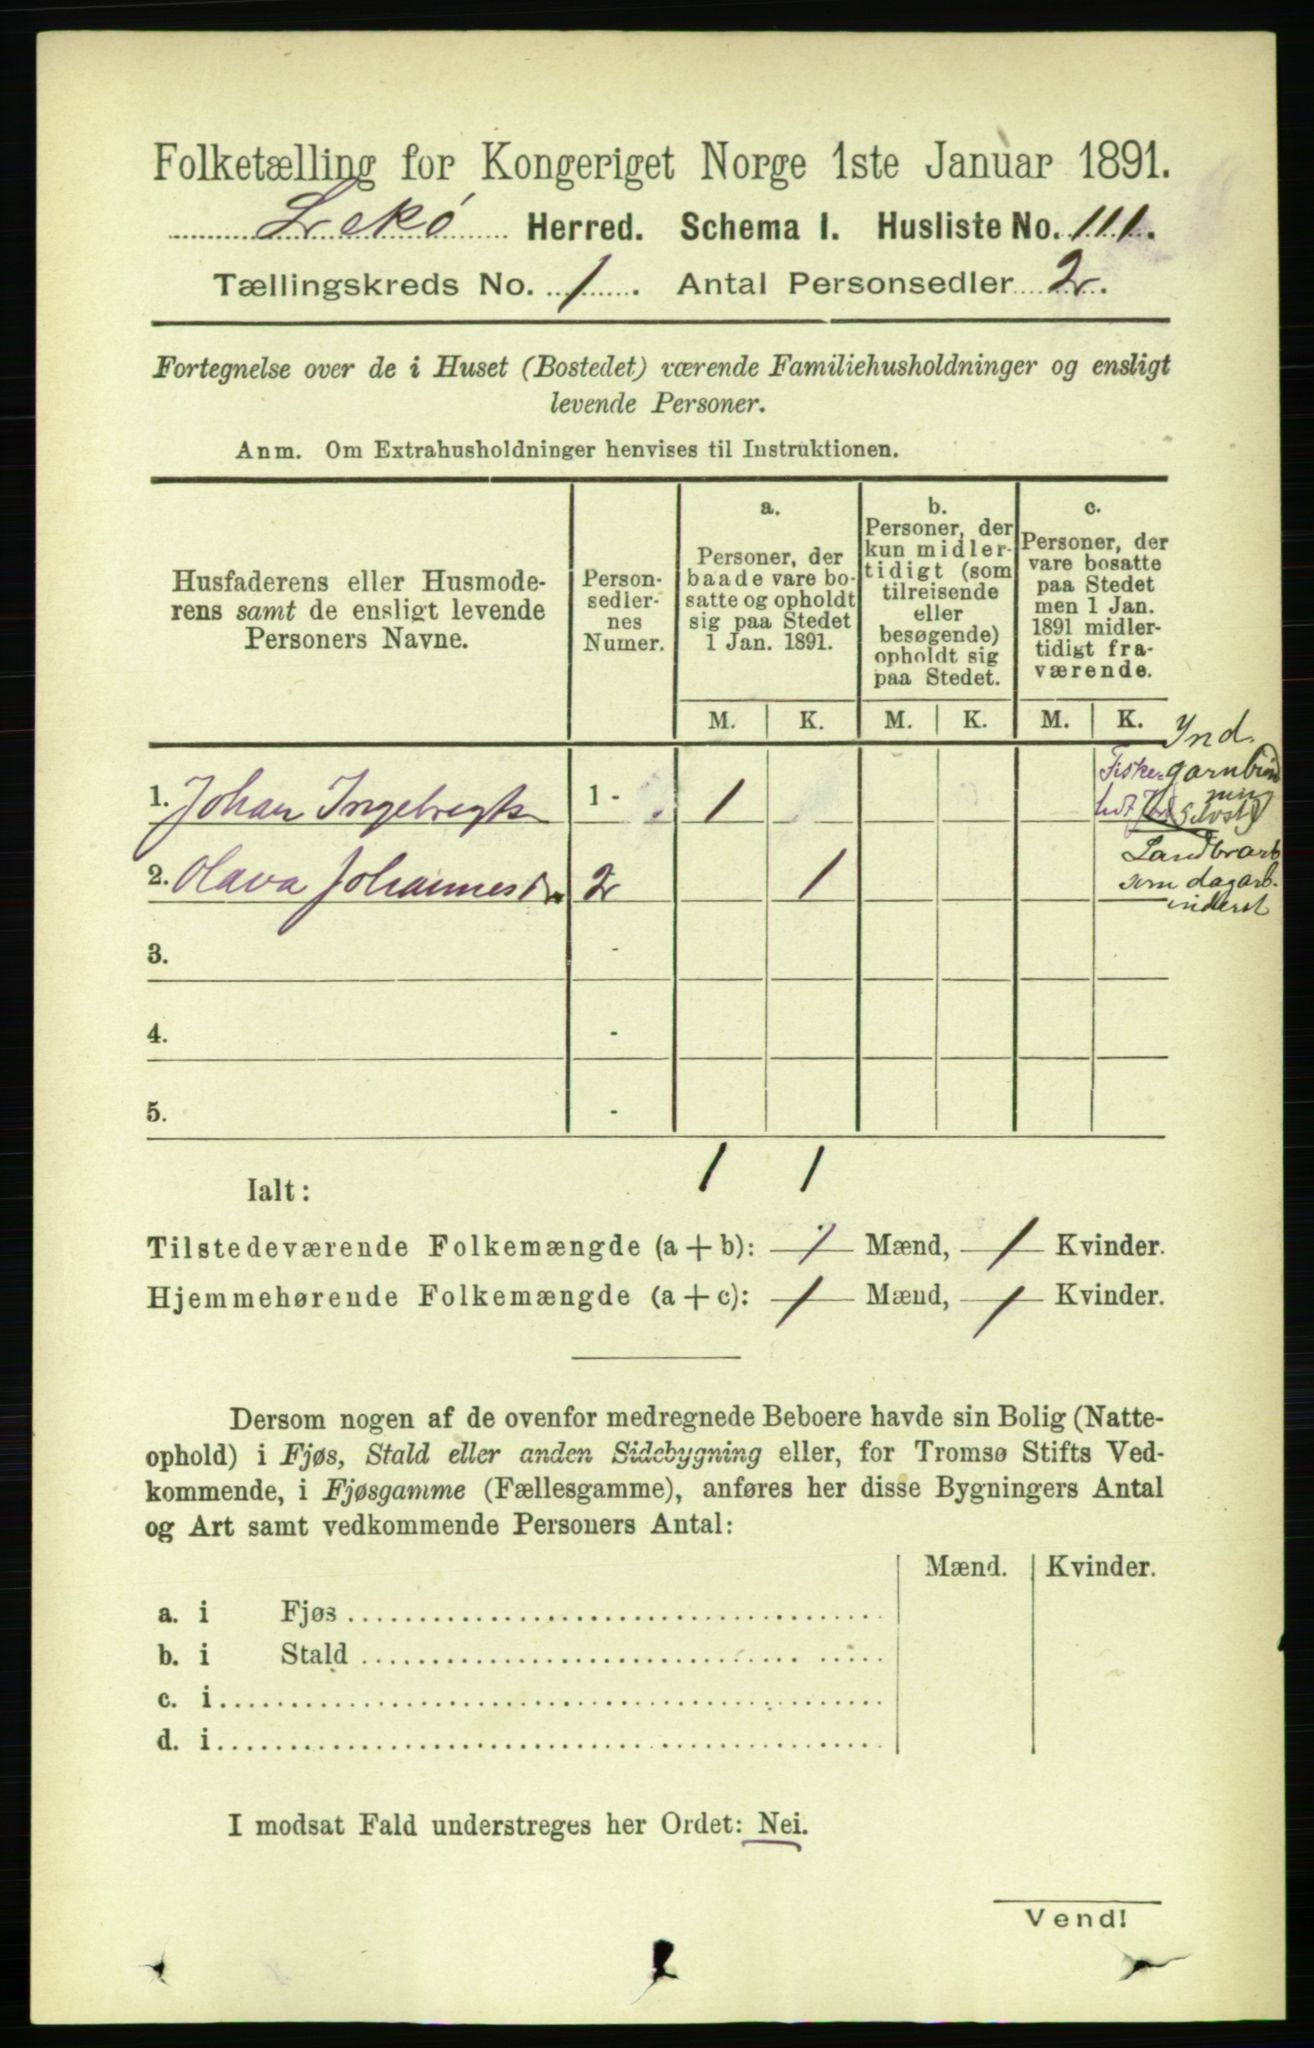 Folketælling for Kongeriget Norge 1ste Januar 1891.
Lekø Herred. Schema I. Husliste No. 111.
Tællingskreds No. 1. Antal Personsedler 2.
Fortegnelse over de i Huset (Bostedet) værende Familiehusholdninger og ensligt
levende Personer.
Anm. Om Extrahusholdninger henvises til Instruktionen.
Husfaderens eller Husmode-
rens samt de ensligt levende
Personers Navne.
Person-
sedler-
nes
Numer.
a.
Personer, der
baade vare bo-
satte og opholdt
sig paa Stedet
1 Jan. 1891.
b.
Personer, der
kun midler-
tidigt (som
tilreisende
eller
besøgende)
opholdt sig
paa Stedet.
c.
Personer, der
vare bosatte
paa Stedet
men 1 Jan.
1891 midler-
tidigt fra-
værende.
M. K. M. K. M. K.
Ind.
Fisker garnbind
ning
Selvst
1. Johan Ingebregts 1 - 1
Landbrarb
som dagarb.
inderst
2. Olava Johannesd. 2 1
3. -
4. -
5. -
Ialt: 1 1
Tilstedeværende Folkemængde (a + b): 1 Mænd, 1 Kvinder.
Hjemmehørende Folkemængde (a + c): 1 Mænd, 1 Kvinder.
Dersom nogen af de ovenfor medregnede Beboere havde sin Bolig (Natte-
ophold) i Fjøs, Stald eller anden Sidebygning eller, for Tromsø Stifts Ved-
kommende, i Fjøsgamme (Fællesgamme), anføres her disse Bygningers Antal
og Art samt vedkommende Personers Antal:
Mænd. Kvinder.
a. i Fjøs
b. i Stald
c. i
d. i
I modsat Fald understreges her Ordet: Nei.
Vend!